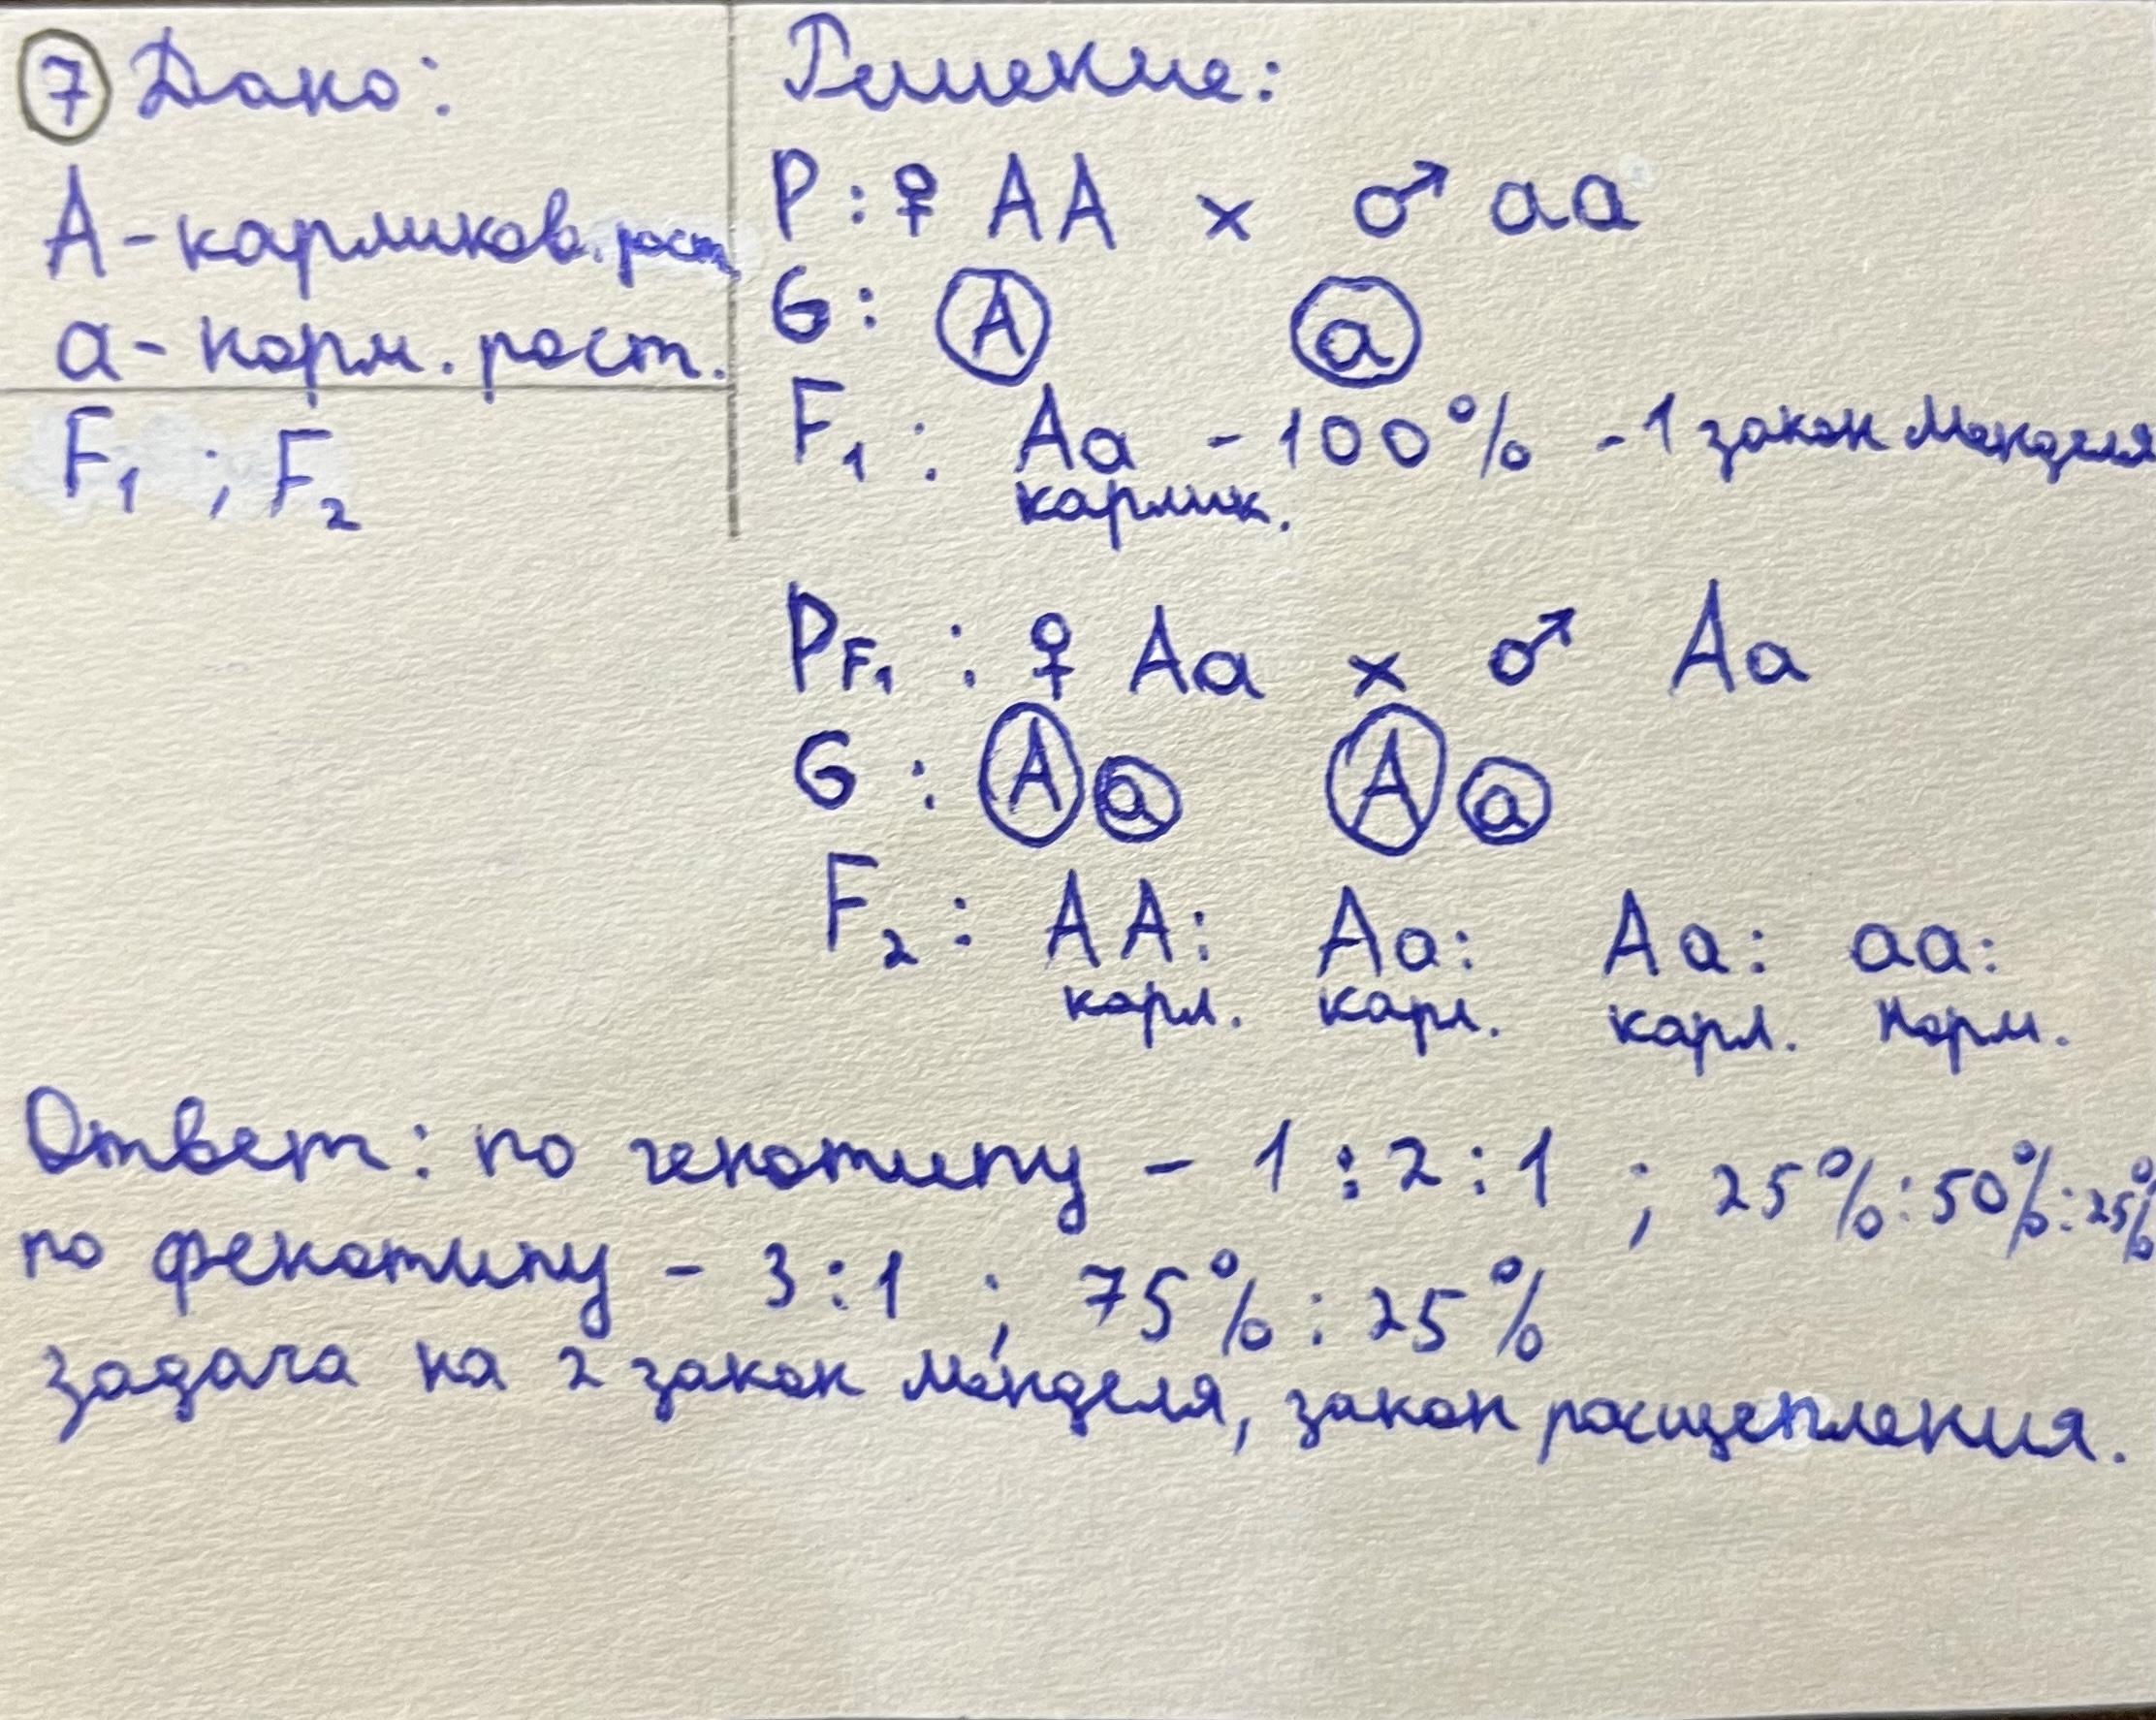 7 Дано:
А - карликов. рост
а - норм. рост.
F₁ ; F₂
Решение:
P : ♀ AA × ♂ aa
G : A a
F₁ : Aa - 100% - 1 закон Менделя
карлик.
P F₁ : ♀ Aa × ♂ Aa
G : A a A a
F₂ : AA : Aa : Aa : aa :
карл. карл. карл. норм.
Ответ: по генотипу - 1 : 2 : 1 ; 25% : 50% : 25%
по фенотипу - 3 : 1 ; 75% : 25%
задача на 2 закон Менделя, закон расщепления.